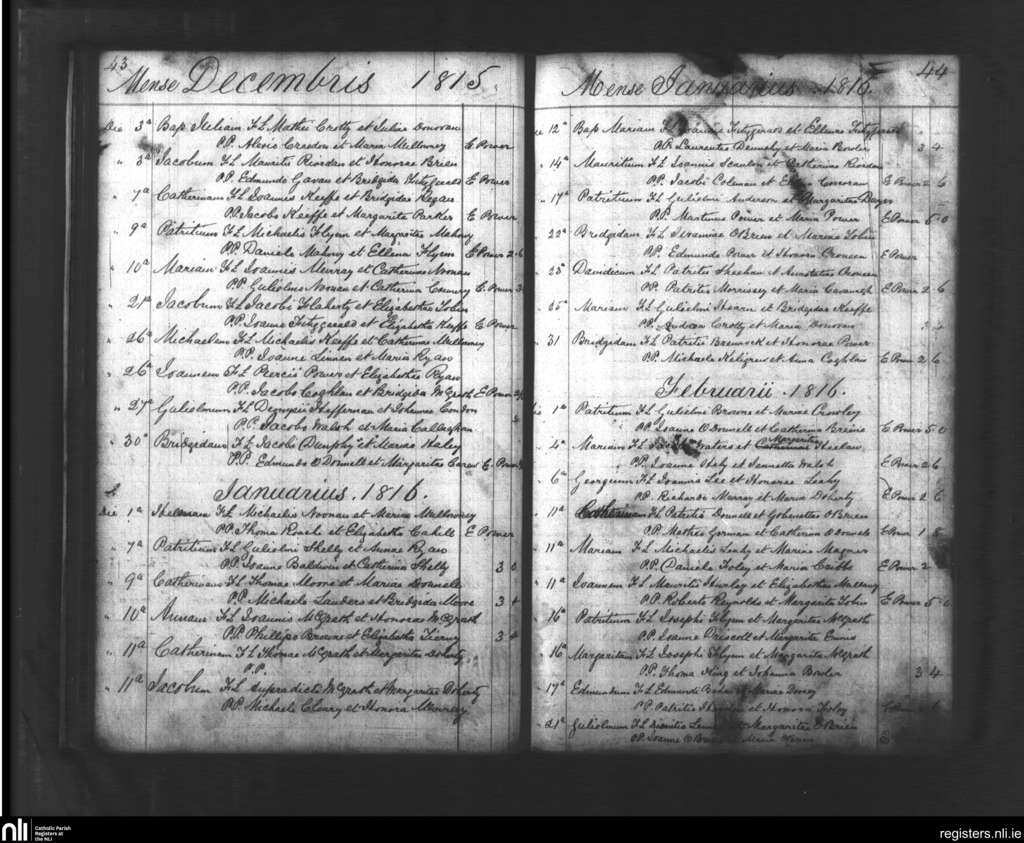 43
Mense Decembris 1815.
Die 3a Bap Juliam F.L. Mathei Crotty et Juliae Donovan
P.P. Alexio Creedon et Maria Mullowney E Power
" 3a Jacobum F.L. Mauritii Riordan et Honorae Brien
P.P. Edmundo Gavan et Bridgida Fitzgerald E Power
" 7a Catherinam F.L. Joannis Keeffe et Bridgidae Regan
P.P. Jacobo Keeffe et Margarita Parker E Power
" 9a Patritium F.L. Michaelis Flynn et Margaritae Mahony
P.P. Daniele Mahony et Ellena Flynn E Power 2 6
" 10a Mariam F.L. Joannis Murray et Catherinae Noonan
P.P. Gulielmo Noonan et Catherina E Power 3
" 21a Jacobum F.L. Jacobi Flaherty et Elizabethae Tobin
P.P. Joanne Fitzgerald et Elizabetha Keeffe E Power
" 26a Michaelem F.L. Michaelis Keeffe et Catherinae Mullowney
P.P. Joanne Linnen et Maria Ryan
" 26a Joannem F.L. Percii Power et Elizabethae Ryan
P.P. Jacobo Coghlan et Bridgida McGrath E Power
" 27a Gulielmum F.L. Heffernan et Johannae Condon
P.P. Jacobo Walsh et Maria Callaghan
" 30a Bridgidam F.L. Jacobi Dunphy et Mariae Haley
P.P. Edmundo O Donnell et Margarita Carew E Power
Januarius. 1816.
Die 1a F.L. Michaelis Noonan et Mariae Mullowney
P.P. Thoma Roache et Elizabetha Cahill E Power
" 7a Patritium F.L. Gulielmi Shelly et Annae Ryan
P.P. Joanne Baldwin et Catherina Shelly 3 0
" 9a Catherinam F.L. Thomae Moore et Mariae Donnell
P.P. Michaele Landers et Bridgida Moore 3 4
" 10a Annam F.L. Joannis McGrath et Honorae McGrath
P.P. Phillipo Browne et Elizabetha Tierny 3 4
" 11a Catherinam F.L. Thomae McGrath et Margaritae Doherty
P.P.
" 11a Jacobum F.L. Supradicti McGrath et Margaritae Doherty
P.P. Michaele Cleary et Honora Murray
44
Mense Januarius 1816.
12a Bap Mariam F.L. Joannis Fitzgerald et Ellenae Fitzgerald
P.P. Laurentio Dennehy et Maria Bowler 3 4
" 14a Mauritium F.L. Joannis Scanlon et Catherinae Riordan
P.P. Jacobo Colman et Corcoran E Power 2 6
" 17a Patritium F.L. Gulielmi Anderson et Margaritae
P.P. Martino Power et Maria Power E Power 5 0
" 22a Bridgidam F.L. Jeremiae O Brien et Mariae Tobin
P.P. Edmundo Power et Honora Croneen E Power
" 25a Davidicum F.L. Patritii Sheehan et Croneen
P.P. Patritio Morrissey et Maria Cavanagh E Power 2 6
" 25a Mariam F.L. Gulielmi Sheran et Bridgidae Keeffe
P.P. Crotty et Maria Donovan 3 4
" 31 Bridgidam F.L. Patritii Brennock et Honorae Power
P.P. Michaele et Anna Coghlan E Power 2 6
Februarii. 1816.
Die 1a Patritium F.L. Gulielmi Browne et Mariae Crowley
P.P. Joanne O Donnell et Catherina E Power 5 0
" 4a Mariam F.L. et Margaritae Sheelan
P.P. Joanne et Walsh E Power 2 6
" 6a Georgium F.L. Joannis Lee et Honorae Leahy
P.P. Richardo Murray et Maria Doherty E Power 2 6
" 11a Catherinam F.L. Patritii Donnell et Gobenettae O Brien
P.P. Matheo Gorman et Catherina O Donnell E Power 1 8
" 11a Mariam F.L. Michaelis Leahy et Mariae Magner
P.P. Daniele Foley et Maria Cribbs E Power 2
" 11a Joannem F.L. Mauritii et Elizabethae
P.P. Roberto Reynolds et Margarita Tobin E Power 5 0
" 16a Patritium F.L. Josephi Flynn et Margaritae McGrath
P.P. Joanne Driscoll et Margarita Ennis
" 16a Margaritam F.L. Josephi Flynn et Margaritae McGrath
P.P. Thoma King et Johanna Bowler 3 4
" 17a Edmundum F.L. Edmundi et Mariae
P.P. Patritio et Honora Foley E Power 6
" 21a Gulielmum F.L. et Margaritae O Brien
P.P. Joanne O Brien et Maria
nli
Catholic Parish
Registers at
the NLI
registers.nli.ie